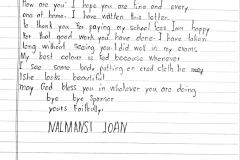 How are you? I hope you are fine and every
one at home. I have written this letter
to thank you for paying my school fees Iam happy
for that good work you have done. I have taken
long without seeing you I did well in my exams
My best colour is Red because whenever
I see some body putting on ered cloth he may
Ishe looks beautiful
may God bless you in whatever you are doing
bye bye sponser
yours Faithfully.
NALMANSI JOAN